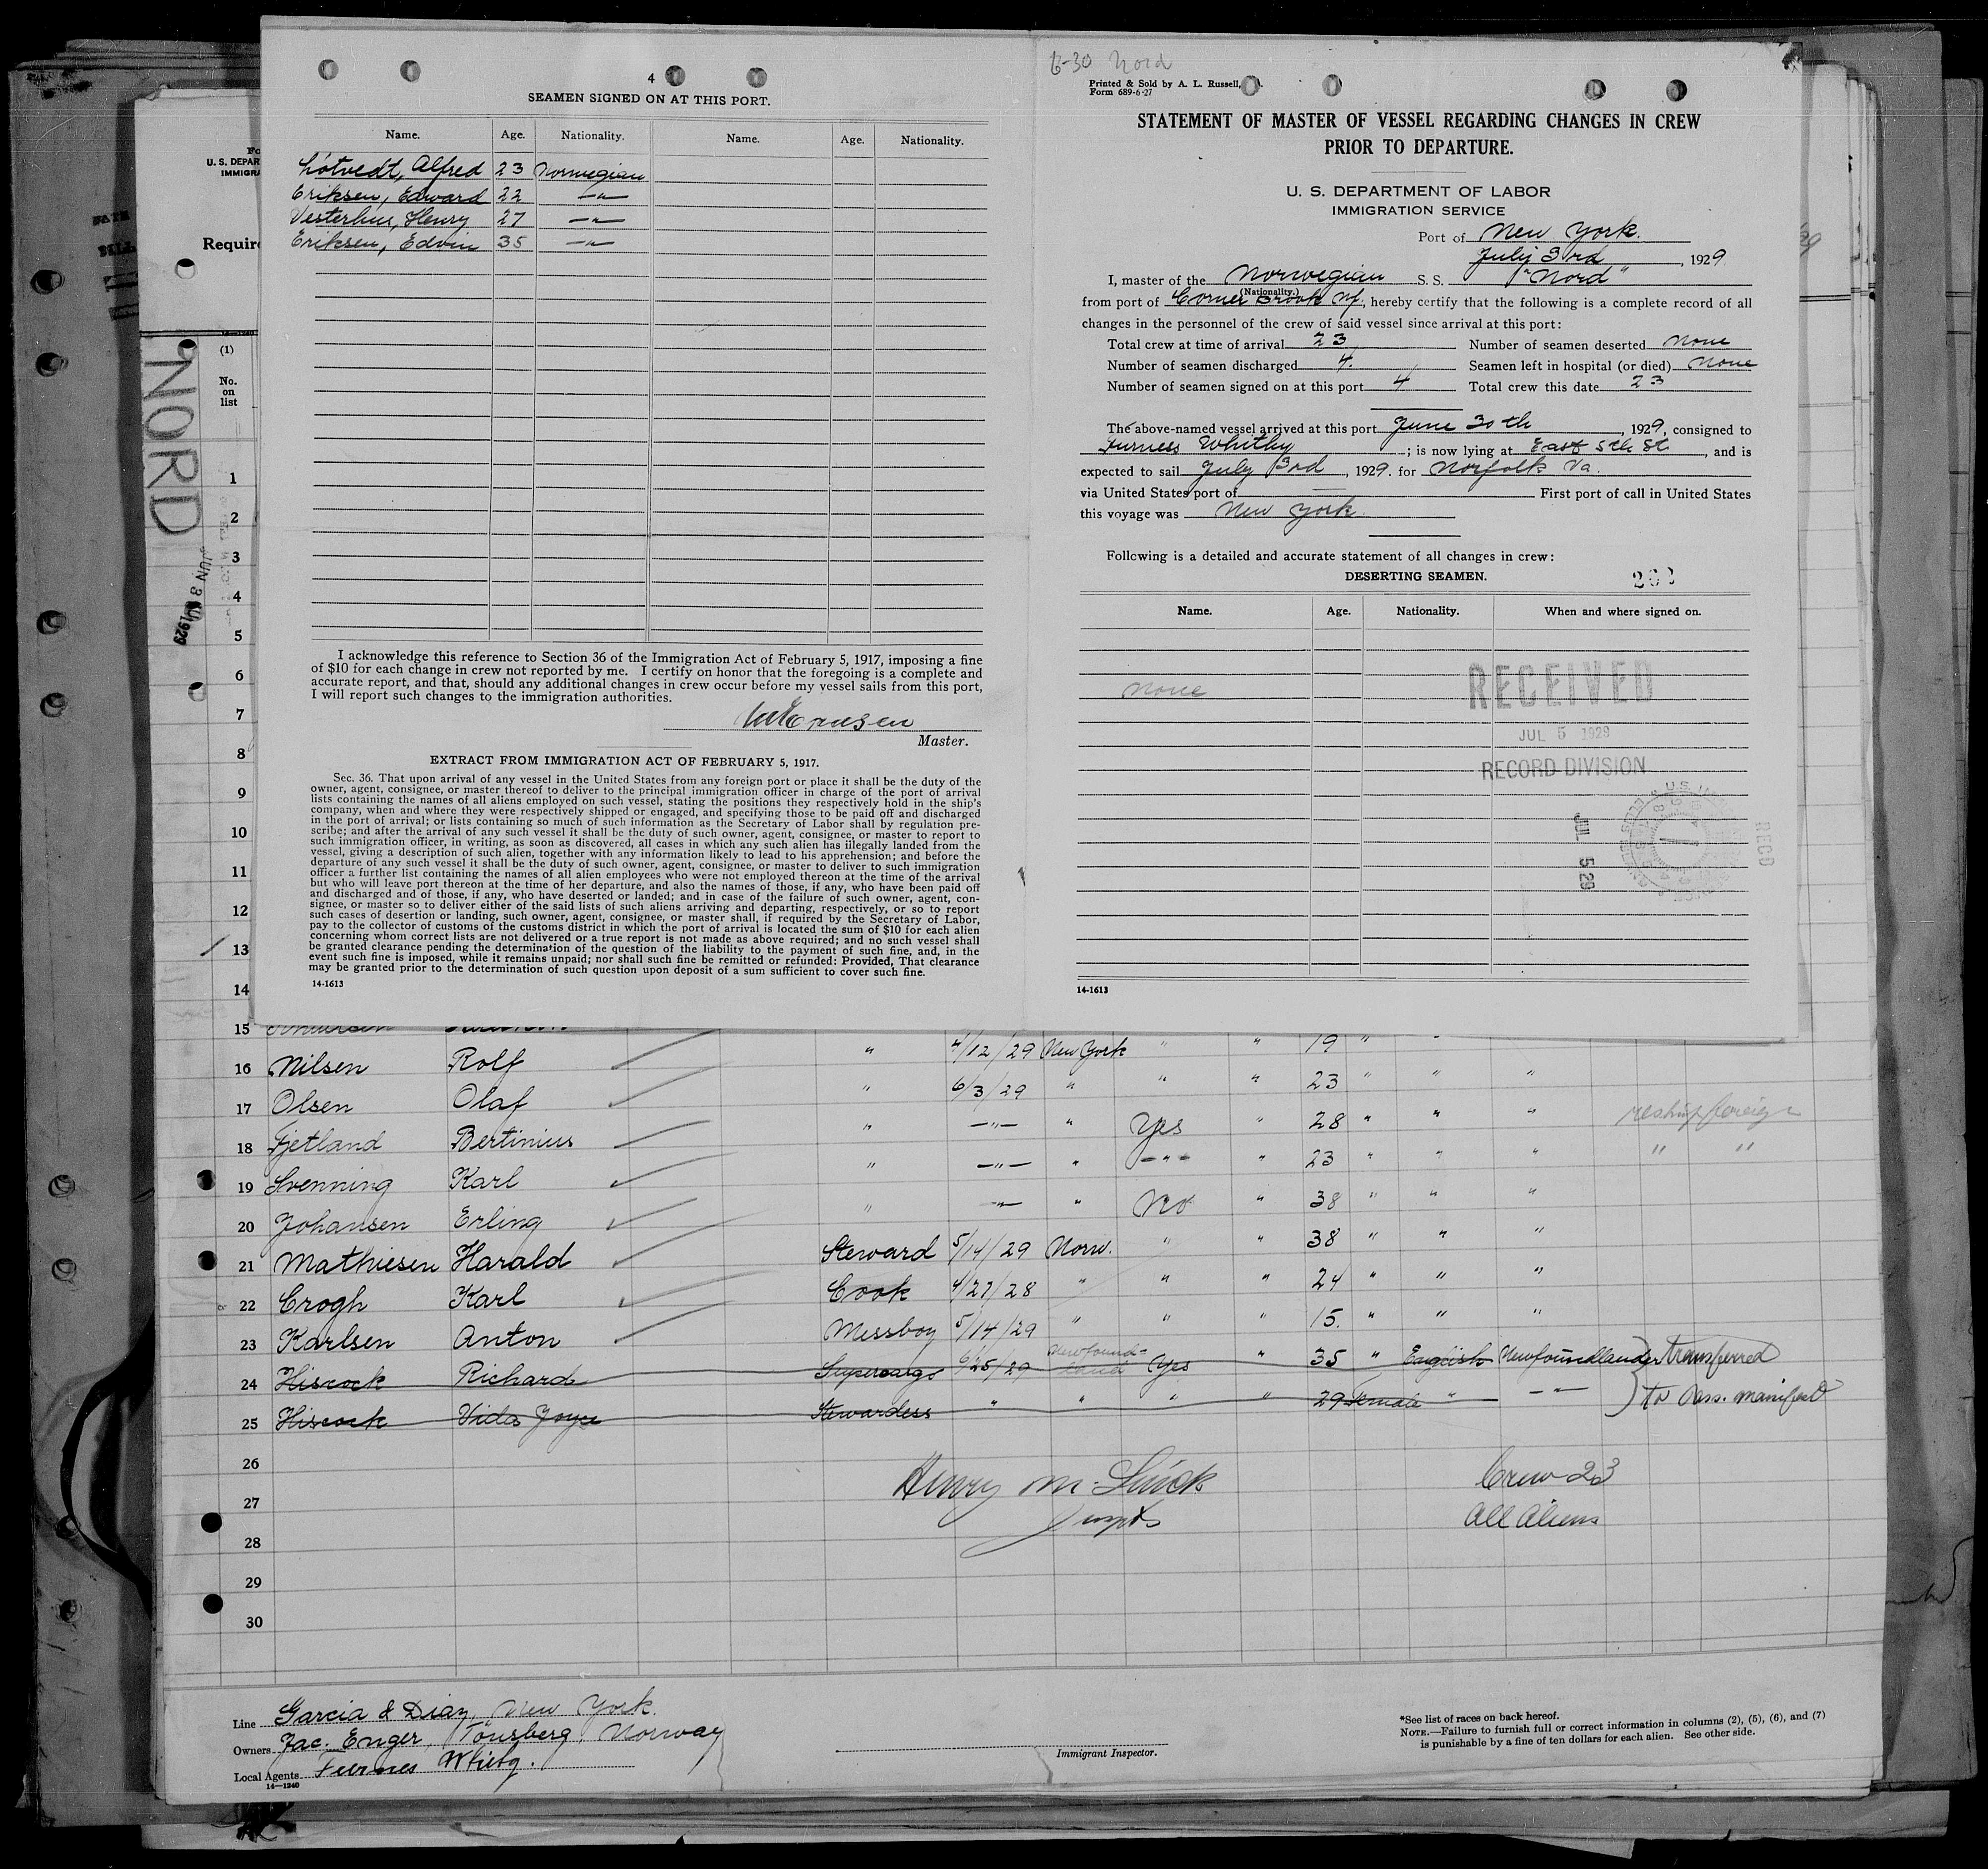 4
SEAMEN SIGNED ON AT THIS PORT.
Name. Age. Nationality. Name. Age. Nationality.
Lötvedt, Alfred 23 Norwegian
Eriksen, Edward 22 —"—
Vesterhus, Henry 27 —"—
Eriksen, Edvin 35 —"—
I acknowledge this reference to Section 36 of the Immigration Act of February 5, 1917, imposing a fine
of $10 for each change in crew not reported by me. I certify on honor that the foregoing is a complete and
accurate report, and that, should any additional changes in crew occur before my vessel sails from this port,
I will report such changes to the immigration authorities.
Master.
EXTRACT FROM IMMIGRATION ACT OF FEBRUARY 5, 1917.
Sec. 36. That upon arrival of any vessel in the United States from any foreign port or place it shall be the duty of the
owner, agent, consignee, or master thereof to deliver to the principal immigration officer in charge of the port of arrival
lists containing the names of all aliens employed on such vessel, stating the positions they respectively hold in the ship's
company, when and where they were respectively shipped or engaged, and specifying those to be paid off and discharged
in the port of arrival; or lists containing so much of such information as the Secretary of Labor shall by regulation pre-
scribe; and after the arrival of any such vessel it shall be the duty of such owner, agent, consignee, or master to report to
such immigration officer, in writing, as soon as discovered, all cases in which any such alien has illegally landed from the
vessel, giving a description of such alien, together with any information likely to lead to his apprehension; and before the
departure of any such vessel it shall be the duty of such owner, agent, consignee, or master to deliver to such immigration
officer a further list containing the names of all alien employees who were not employed thereon at the time of the arrival
but who will leave port thereon at the time of her departure, and also the names of those, if any, who have been paid off
and discharged and of those, if any, who have deserted or landed; and in case of the failure of such owner, agent, con-
signee, or master so to deliver either of the said lists of such aliens arriving and departing, respectively, or so to report
such cases of desertion or landing, such owner, agent, consignee, or master shall, if required by the Secretary of Labor,
pay to the collector of customs of the customs district in which the port of arrival is located the sum of $10 for each alien
concerning whom correct lists are not delivered or a true report is not made as above required; and no such vessel shall
be granted clearance pending the determination of the question of the liability to the payment of such fine, and, in the
event such fine is imposed, while it remains unpaid; nor shall such fine be remitted or refunded: Provided, That clearance
may be granted prior to the determination of such question upon deposit of a sum sufficient to cover such fine.
14-1613
6-30 Nord
Printed & Sold by A. L. Russell,
Form 689-6-27
STATEMENT OF MASTER OF VESSEL REGARDING CHANGES IN CREW
PRIOR TO DEPARTURE.
U. S. DEPARTMENT OF LABOR
IMMIGRATION SERVICE
Port of New York.
July 3rd, 1929
I, master of the Norwegian S. S. "Nord"
(Nationality.)
from port of Corner Brook Nf, hereby certify that the following is a complete record of all
changes in the personnel of the crew of said vessel since arrival at this port:
Total crew at time of arrival 23 Number of seamen deserted None
Number of seamen discharged 4. Seamen left in hospital (or died) None
Number of seamen signed on at this port 4 Total crew this date 23
The above-named vessel arrived at this port June 30th, 1929, consigned to
Furness Whithy; is now lying at East 5th St, and is
expected to sail July 3rd, 1929. for Norfolk Va.
via United States port of First port of call in United States
this voyage was New York.
Following is a detailed and accurate statement of all changes in crew:
DESERTING SEAMEN.
Name. Age. Nationality. When and where signed on.
none
RECEIVED
JUL 5 1929
RECORD DIVISION
JUL 5 29
RECD
U. S. DEPAR
IMMIGRA
Require
NORD
JUN 30 1929
(1)
No.
on
list
1
2
3
4
5
6
7
8
9
10
11
12
13
14
15
16 Nilsen Rolf " 4/12/29 New York " " 19 " "
17 Olsen Olaf " 6/3/29 " " " 23 " " "
18 Fjetland Bertinius " —"— " Yes " 28 " " " reship foreign
19 Svenning Karl " —"— " —"— " 23 " " " " "
20 Johansen Erling " —"— " No " 38 " " "
21 Mathiesen Harald Steward 5/14/29 Norw. " " 38 " " "
22 Crogh Karl Cook 4/27/28 " " " 24 " " "
23 Karlsen Anton Messboy 5/14/29 " " " 15. " " "
24 Hiscock Richard Supercargo 6/25/29 Newfoundland Yes " 35 " English Newfoundlander transferred
25 Hiscock Vida Joyce Stewardess " " " " 29 Female " —"— to pass. manifest
26
27
28
29
30
Crew 23
All Aliens
Line Garcia & Diaz, New York.
Owners Jac. Enger, Tönsberg, Norway
Local Agents Furness Whitby.
14—1240
Immigrant Inspector.
*See list of races on back hereof.
NOTE.—Failure to furnish full or correct information in columns (2), (5), (6), and (7)
is punishable by a fine of ten dollars for each alien. See other side.